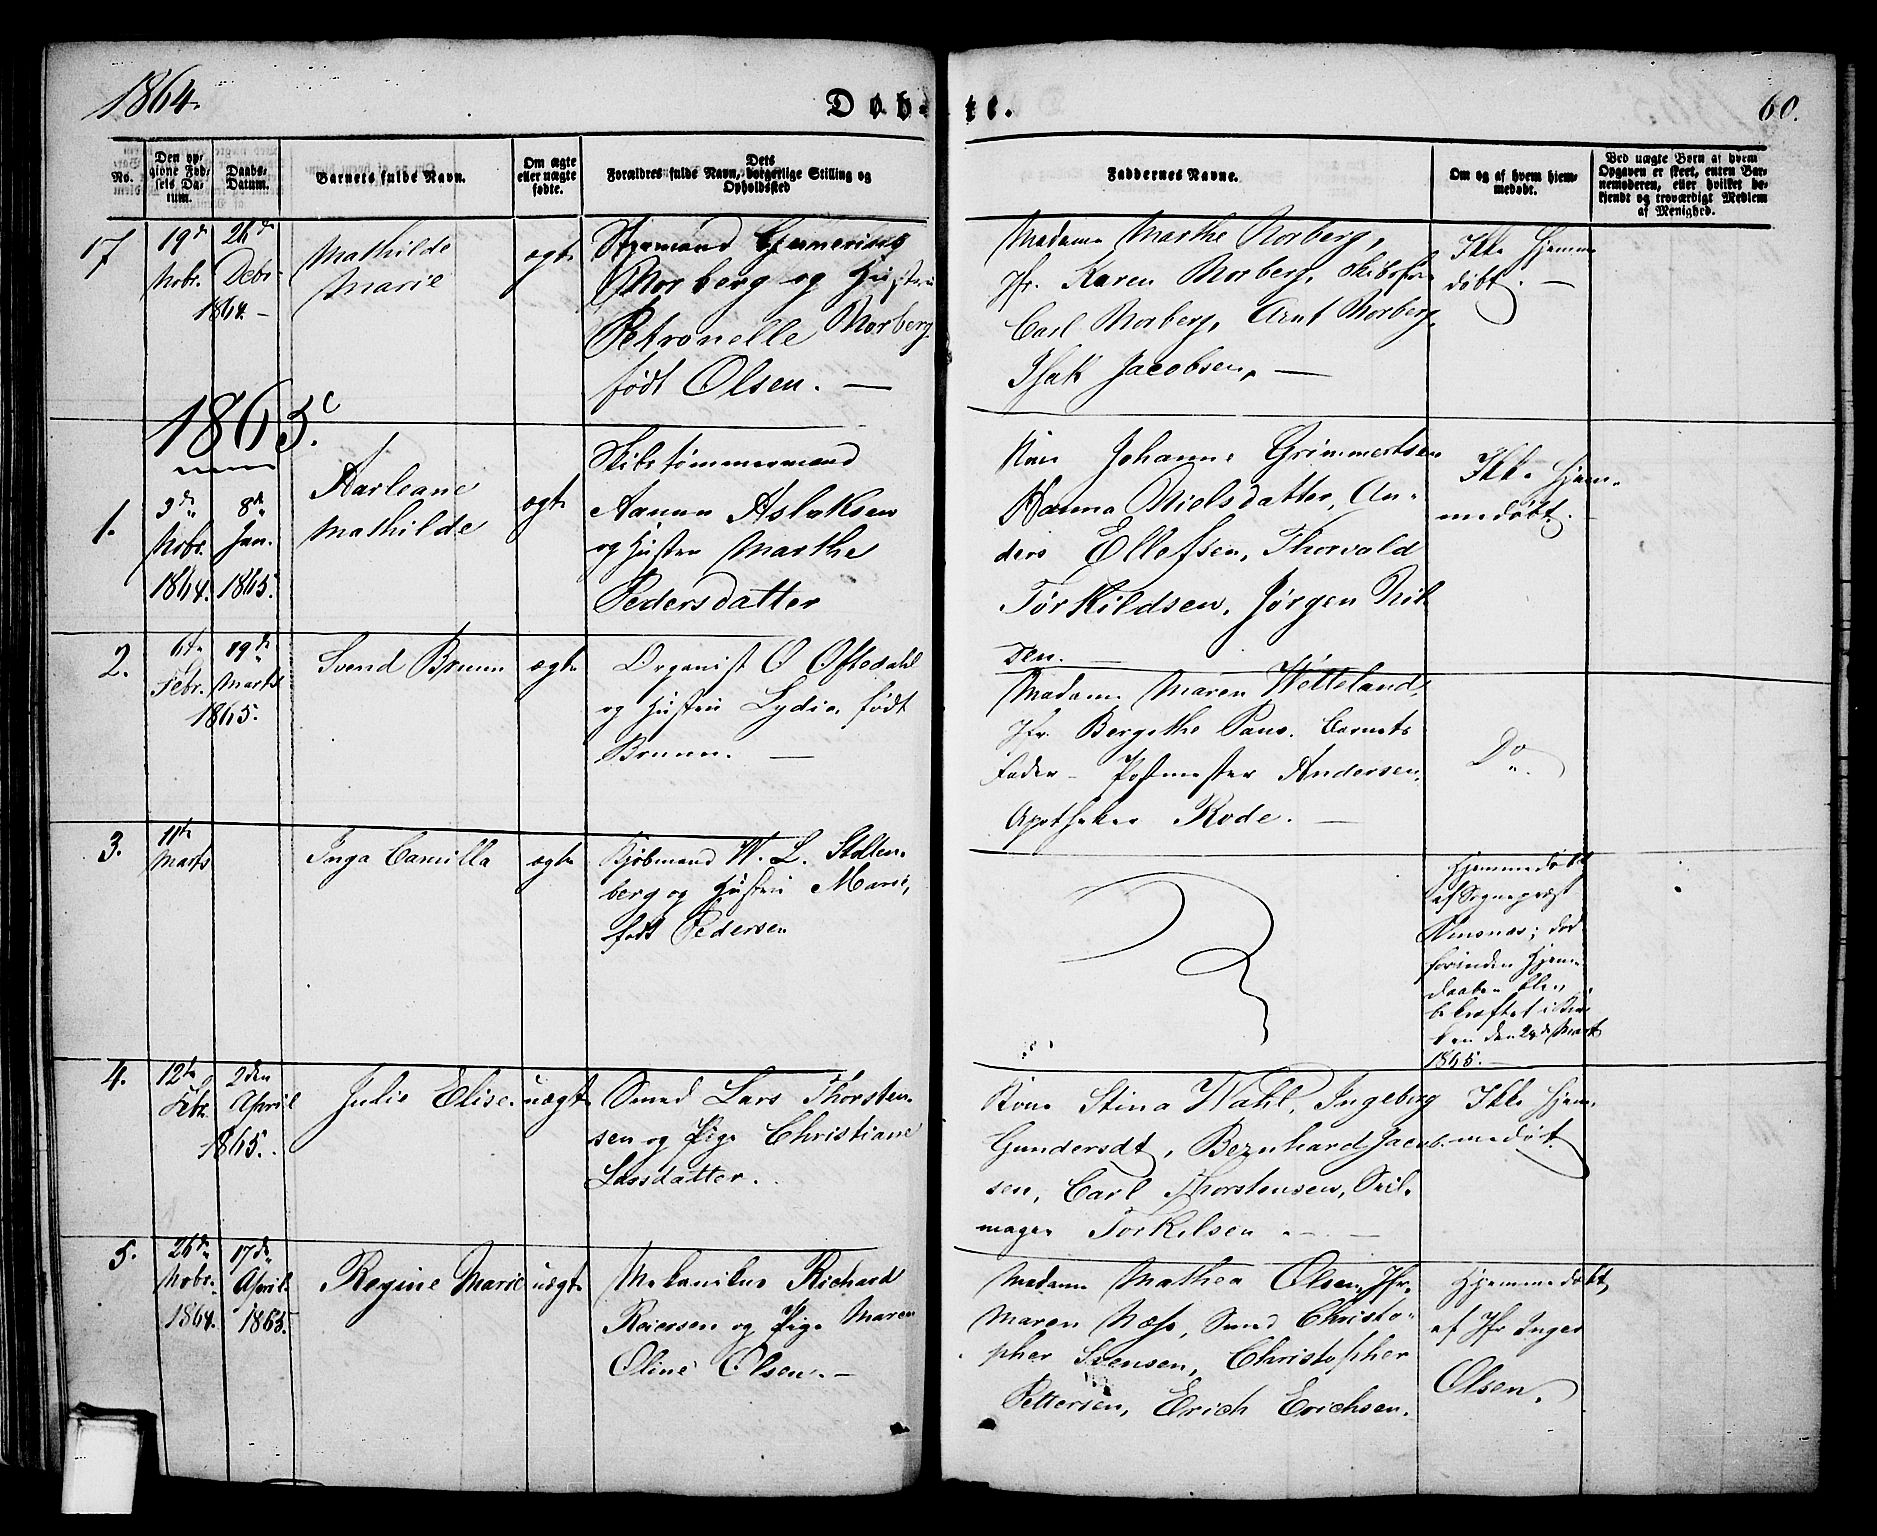 1864.
Døbte.
60.
No.
Den op-
givne Fød-
sels Da-
tum.
Daabs-
Datum.
Barnets fulde Navn.
Om ægte
eller uægte
fødte.
Dets
Forældres fulde Navn, borgerlige Stilling og
Opholdssted
Faddernes Navne.
Om og af hvem hjem-
medøbt.
Ved uægte Børn af hvem
Opgaven er skeet, enten Bar-
nemoderen, eller hvilket be-
kjendt og troværdigt Medlem
af Menighed.
17
19de
Nobr.
26de
Debr.
1864.
Mathilde
Marie
ægte
Styrmand
Morberg og Hustru
Petronelle Morberg
født Olsen.
Madame Marthe Norberg,
Jfr. Karen Morberg, Skibsfør
Carl Morberg, Arnt Morberg,
Isak Jacobsen,
Ikke Hjemme
døbt.
1865.
1.
3de
Nobr.
1864.
8de
Jan.
1865.
Aarleane
Mathilde
ægte
Skibstømmermand
Aanun Aslaksen
og Hustru Marthe
Pedersdatter
Kone Johanne Grimmertsen
Hanna Nielsdatter, An-
ders Ellefsen, Thorvald
Tørkildsen, Jørgen
den.
Ikke Hjem-
medøbt.
2.
6te
Febr.
19de
Marts
1865.
Svend Bruun
ægte
Organist O Oftedahl
og Hustru Lydia, født
Bruun.
Madame Maren Wetteland,
Jfr. Bergithe Paus. Barnets
Fader - Postmester Andersen,
Apotheker Rode.
Do
3.
11te
Marts
Inga Camilla
ægte
Kjøbmand W. L. Stolten-
berg og Hustru Marie,
født Pedersen
Hjemmedøbt
af Sogneprest
Smsnæs; død
forinden Hjemme
daaben blev
bekræftet i Kir
ken den 28de Marts
1865.
4.
12te
Febr.
2den
April
1865.
Julie Elise.
uægte
Smed Lars Thorsten-
sen og Pige Christiane
Larsdatter.
Kone Stina Wahl, Ingeberg
Gundersdt, Bernhard Jacob-
sen, Carl Thorstensen, Seil-
mager Torkilsen
Ikke Hjem-
medøbt
5.
26de
Nobr.
1864.
17de
April
1865.
Regine Marie
uægte
Mekanikus Richard
Reiersen og Pige Maren
Oline Olsen.
Madame Mathea Olsen, Jfr.
Maren Næss, Smed Christo-
pher Svensen, Christopher
Pettersen, Erich Erichsen.
Hjemmedøbt,
af Jfr Inger
Olsen.